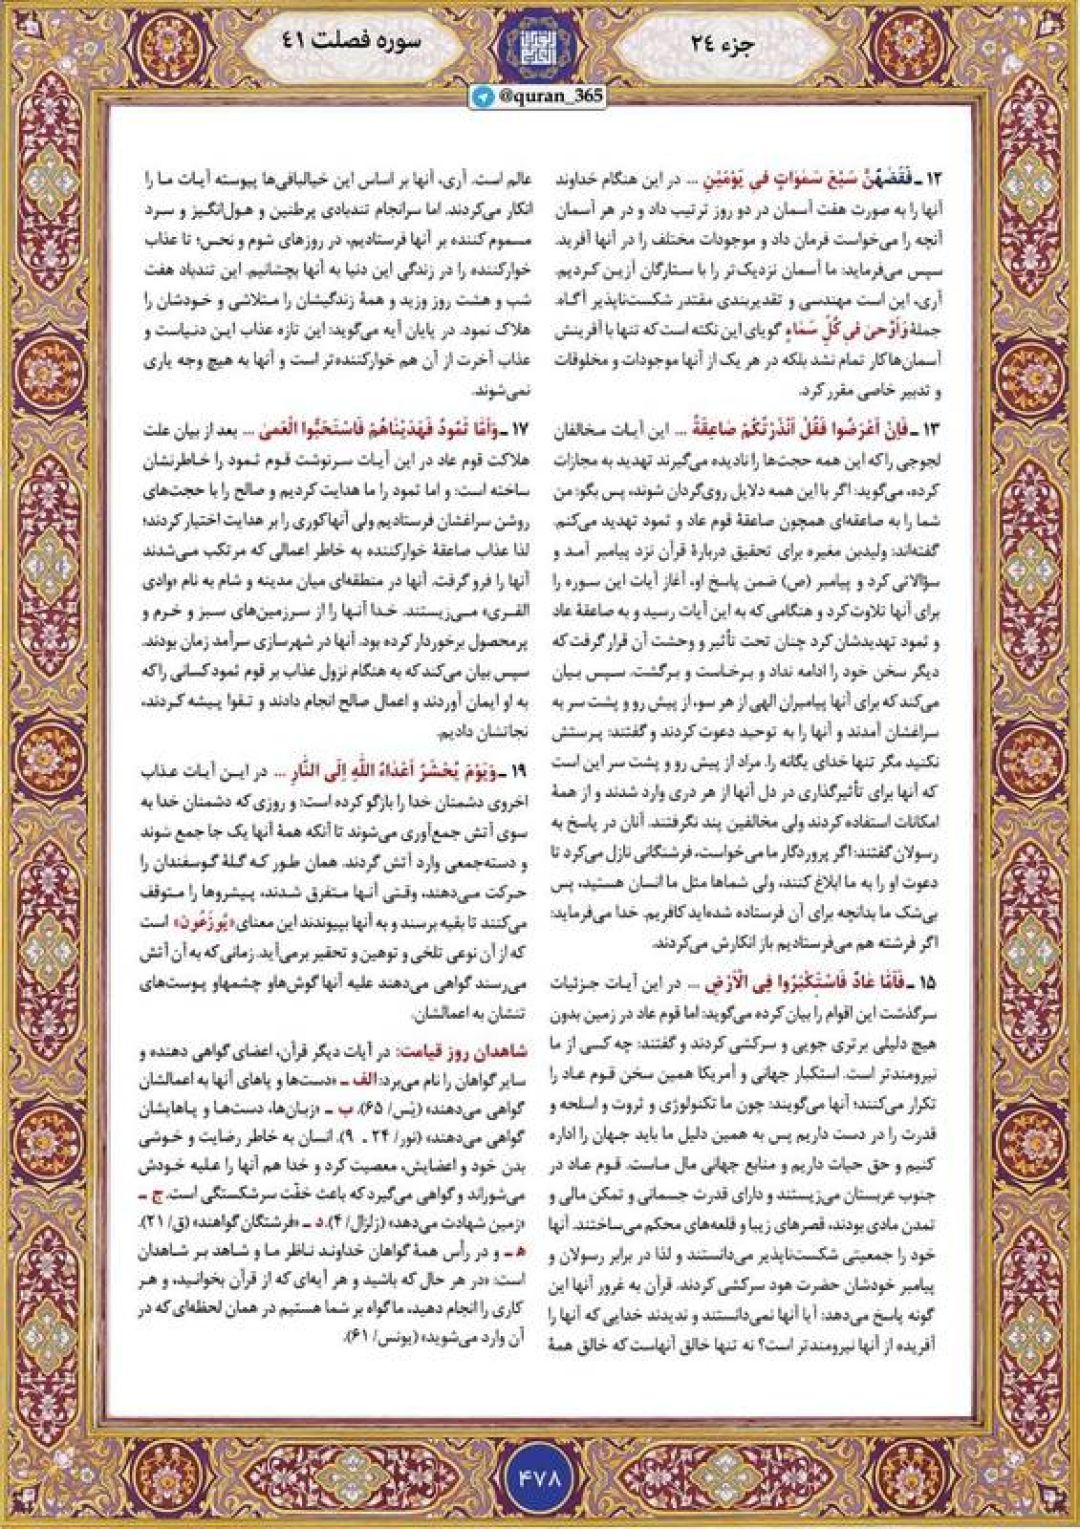 جزء ٢٤
سوره فصلت ٤١
@quran_365
١٢ ـ فَقَضٰهُنَّ سَبْعَ سَمٰوَاتٍ فی یَوْمَیْنِ ... در این هنگام خداوند
آنها را به صورت هفت آسمان در دو روز ترتیب داد و در هر آسمان
آنچه را می‌خواست فرمان داد و موجودات مختلف را در آنها آفرید.
سپس می‌فرماید: ما آسمان نزدیک‌تر را با ستارگان آزین کردیم.
آری، این است مهندسی و تقدیربندی مقتدر شکست‌ناپذیر آگاه.
جملهٔ وَأَوْحیٰ فی کُلِّ سَمٰاءٍ گویای این نکته است که تنها با آفرینش
آسمان‌ها کار تمام نشد بلکه در هر یک از آنها موجودات و مخلوقات
و تدبیر خاصی مقرر کرد.
١٣ ـ فَإِنْ أَعْرَضُوا فَقُلْ أَنْذَرْتُکُمْ صَاعِقَةً ... این آیات مخالفان
لجوجی را که این همه حجت‌ها را نادیده می‌گیرند تهدید به مجازات
کرده، می‌گوید: اگر با این همه دلایل روی‌گردان شوند، پس بگو: من
شما را به صاعقه‌ای همچون صاعقهٔ قوم عاد و ثمود تهدید می‌کنم.
گفته‌اند: ولیدبن مغیره برای تحقیق دربارهٔ قرآن نزد پیامبر آمد و
سؤالاتی کرد و پیامبر (ص) ضمن پاسخ او، آغاز آیات این سوره را
برای آنها تلاوت کرد و هنگامی که به این آیات رسید و به صاعقهٔ عاد
و ثمود تهدیدشان کرد چنان تحت تأثیر و وحشت آن قرار گرفت که
دیگر سخن خود را ادامه نداد و برخاست و برگشت. سپس بیان
می‌کند که برای آنها پیامبران الهی از هر سو، از پیش رو و پشت سر به
سراغشان آمدند و آنها را به توحید دعوت کردند و گفتند: پرستش
نکنید مگر تنها خدای یگانه را. مراد از پیش رو و پشت سر این است
که آنها برای تأثیرگذاری در دل آنها از هر دری وارد شدند و از همهٔ
امکانات استفاده کردند ولی مخالفین پند نگرفتند. آنان در پاسخ به
رسولان گفتند: اگر پروردگار ما می‌خواست، فرشتگانی نازل می‌کرد تا
دعوت او را به ما ابلاغ کنند، ولی شماها مثل ما انسان هستید، پس
بی‌شک ما بدانچه برای آن فرستاده شده‌اید کافریم. خدا می‌فرماید:
اگر فرشته هم می‌فرستادیم باز انکارش می‌کردند.
١٥ ـ فَأَمَّا عَادٌ فَاسْتَکْبَرُوا فِی الْأَرْضِ ... در این آیات جزئیات
سرگذشت این اقوام را بیان کرده می‌گوید: اما قوم عاد در زمین بدون
هیچ دلیلی برتری جویی و سرکشی کردند و گفتند: چه کسی از ما
نیرومندتر است. استکبار جهانی و آمریکا همین سخن قوم عاد را
تکرار می‌کنند؛ آنها می‌گویند: چون ما تکنولوژی و ثروت و اسلحه و
قدرت را در دست داریم پس به همین دلیل ما باید جهان را اداره
کنیم و حق حیات داریم و منابع جهانی مال ماست. قوم عاد در
جنوب عربستان می‌زیستند و دارای قدرت جسمانی و تمکن مالی و
تمدن مادی بودند، قصرهای زیبا و قلعه‌های محکم می‌ساختند. آنها
خود را جمعیتی شکست‌ناپذیر می‌دانستند و لذا در برابر رسولان و
پیامبر خودشان حضرت هود سرکشی کردند. قرآن به غرور آنها این
گونه پاسخ می‌دهد: آیا آنها نمی‌دانستند و ندیدند خدایی که آنها را
آفریده از آنها نیرومندتر است؟ نه تنها خالق آنهاست که خالق همهٔ
عالم است. آری، آنها بر اساس این خیالبافی‌ها پیوسته آیات ما را
انکار می‌کردند. اما سرانجام تندبادی پرطنین و هول‌انگیز و سرد
مسموم کننده بر آنها فرستادیم، در روزهای شوم و نحس؛ تا عذاب
خوارکننده را در زندگی این دنیا به آنها بچشانیم. این تندباد هفت
شب و هشت روز وزید و همهٔ زندگیشان را متلاشی و خودشان را
هلاک نمود. در پایان آیه می‌گوید: این تازه عذاب این دنیاست و
عذاب آخرت از آن هم خوارکننده‌تر است و آنها به هیچ وجه یاری
نمی‌شوند.
١٧ ـ وَأَمَّا ثَمُودُ فَهَدَیْنَاهُمْ فَاسْتَحَبُّوا الْعَمیٰ ... بعد از بیان علت
هلاکت قوم عاد در این آیات سرنوشت قوم ثمود را خاطرنشان
ساخته است: و اما ثمود را ما هدایت کردیم و صالح را با حجت‌های
روشن سراغشان فرستادیم ولی آنها کوری را بر هدایت اختیار کردند؛
لذا عذاب صاعقهٔ خوارکننده به خاطر اعمالی که مرتکب می‌شدند
آنها را فرو گرفت. آنها در منطقه‌ای میان مدینه و شام به نام «وادی
القری» می‌زیستند. خدا آنها را از سرزمین‌های سبز و خرم و
پرمحصول برخوردار کرده بود. آنها در شهرسازی سرآمد زمان بودند.
سپس بیان می‌کند که به هنگام نزول عذاب بر قوم ثمود کسانی را که
به او ایمان آوردند و اعمال صالح انجام دادند و تقوا پیشه کردند،
نجاتشان دادیم.
١٩ ـ وَیَوْمَ یُحْشَرُ أَعْدَاءُ اللّٰهِ إِلَی النَّارِ ... در این آیات عذاب
اخروی دشمنان خدا را بازگو کرده است: و روزی که دشمنان خدا به
سوی آتش جمع‌آوری می‌شوند تا آنکه همهٔ آنها یک جا جمع شوند
و دسته‌جمعی وارد آتش گردند. همان طور که گلهٔ گوسفندان را
حرکت می‌دهند، وقتی آنها متفرق شدند، پیشروها را متوقف
می‌کنند تا بقیه برسند و به آنها بپیوندند این معنای «یُوزَعُونَ» است
که از آن نوعی تلخی و توهین و تحقیر برمی‌آید. زمانی که به آن آتش
می‌رسند گواهی می‌دهند علیه آنها گوش‌هاو چشمهاو پوست‌های
تنشان به اعمالشان.
شاهدان روز قیامت: در آیات دیگر قرآن، اعضای گواهی دهنده و
سایر گواهان را نام می‌برد: الف ـ «دست‌ها و پاهای آنها به اعمالشان
گواهی می‌دهند» (یٰس/ ٦٥). ب ـ «زبان‌ها، دست‌ها و پاهایشان
گواهی می‌دهند» (نور/ ٢٤ ـ ٩). انسان به خاطر رضایت و خوشی
بدن خود و اعضایش، معصیت کرد و خدا هم آنها را علیه خودش
می‌شوراند و گواهی می‌گیرد که باعث خفّت سرشکستگی است. ج ـ
«زمین شهادت می‌دهد» (زلزال/ ٤). د ـ «فرشتگان گواهند» (ق/ ٢١).
ه‍ ـ و در رأس همهٔ گواهان خداوند ناظر ما و شاهد بر شاهدان
است: «در هر حال که باشید و هر آیه‌ای که از قرآن بخوانید، و هر
کاری را انجام دهید، ما گواه بر شما هستیم در همان لحظه‌ای که در
آن وارد می‌شوید» (یونس/ ٦١).
٤٧٨